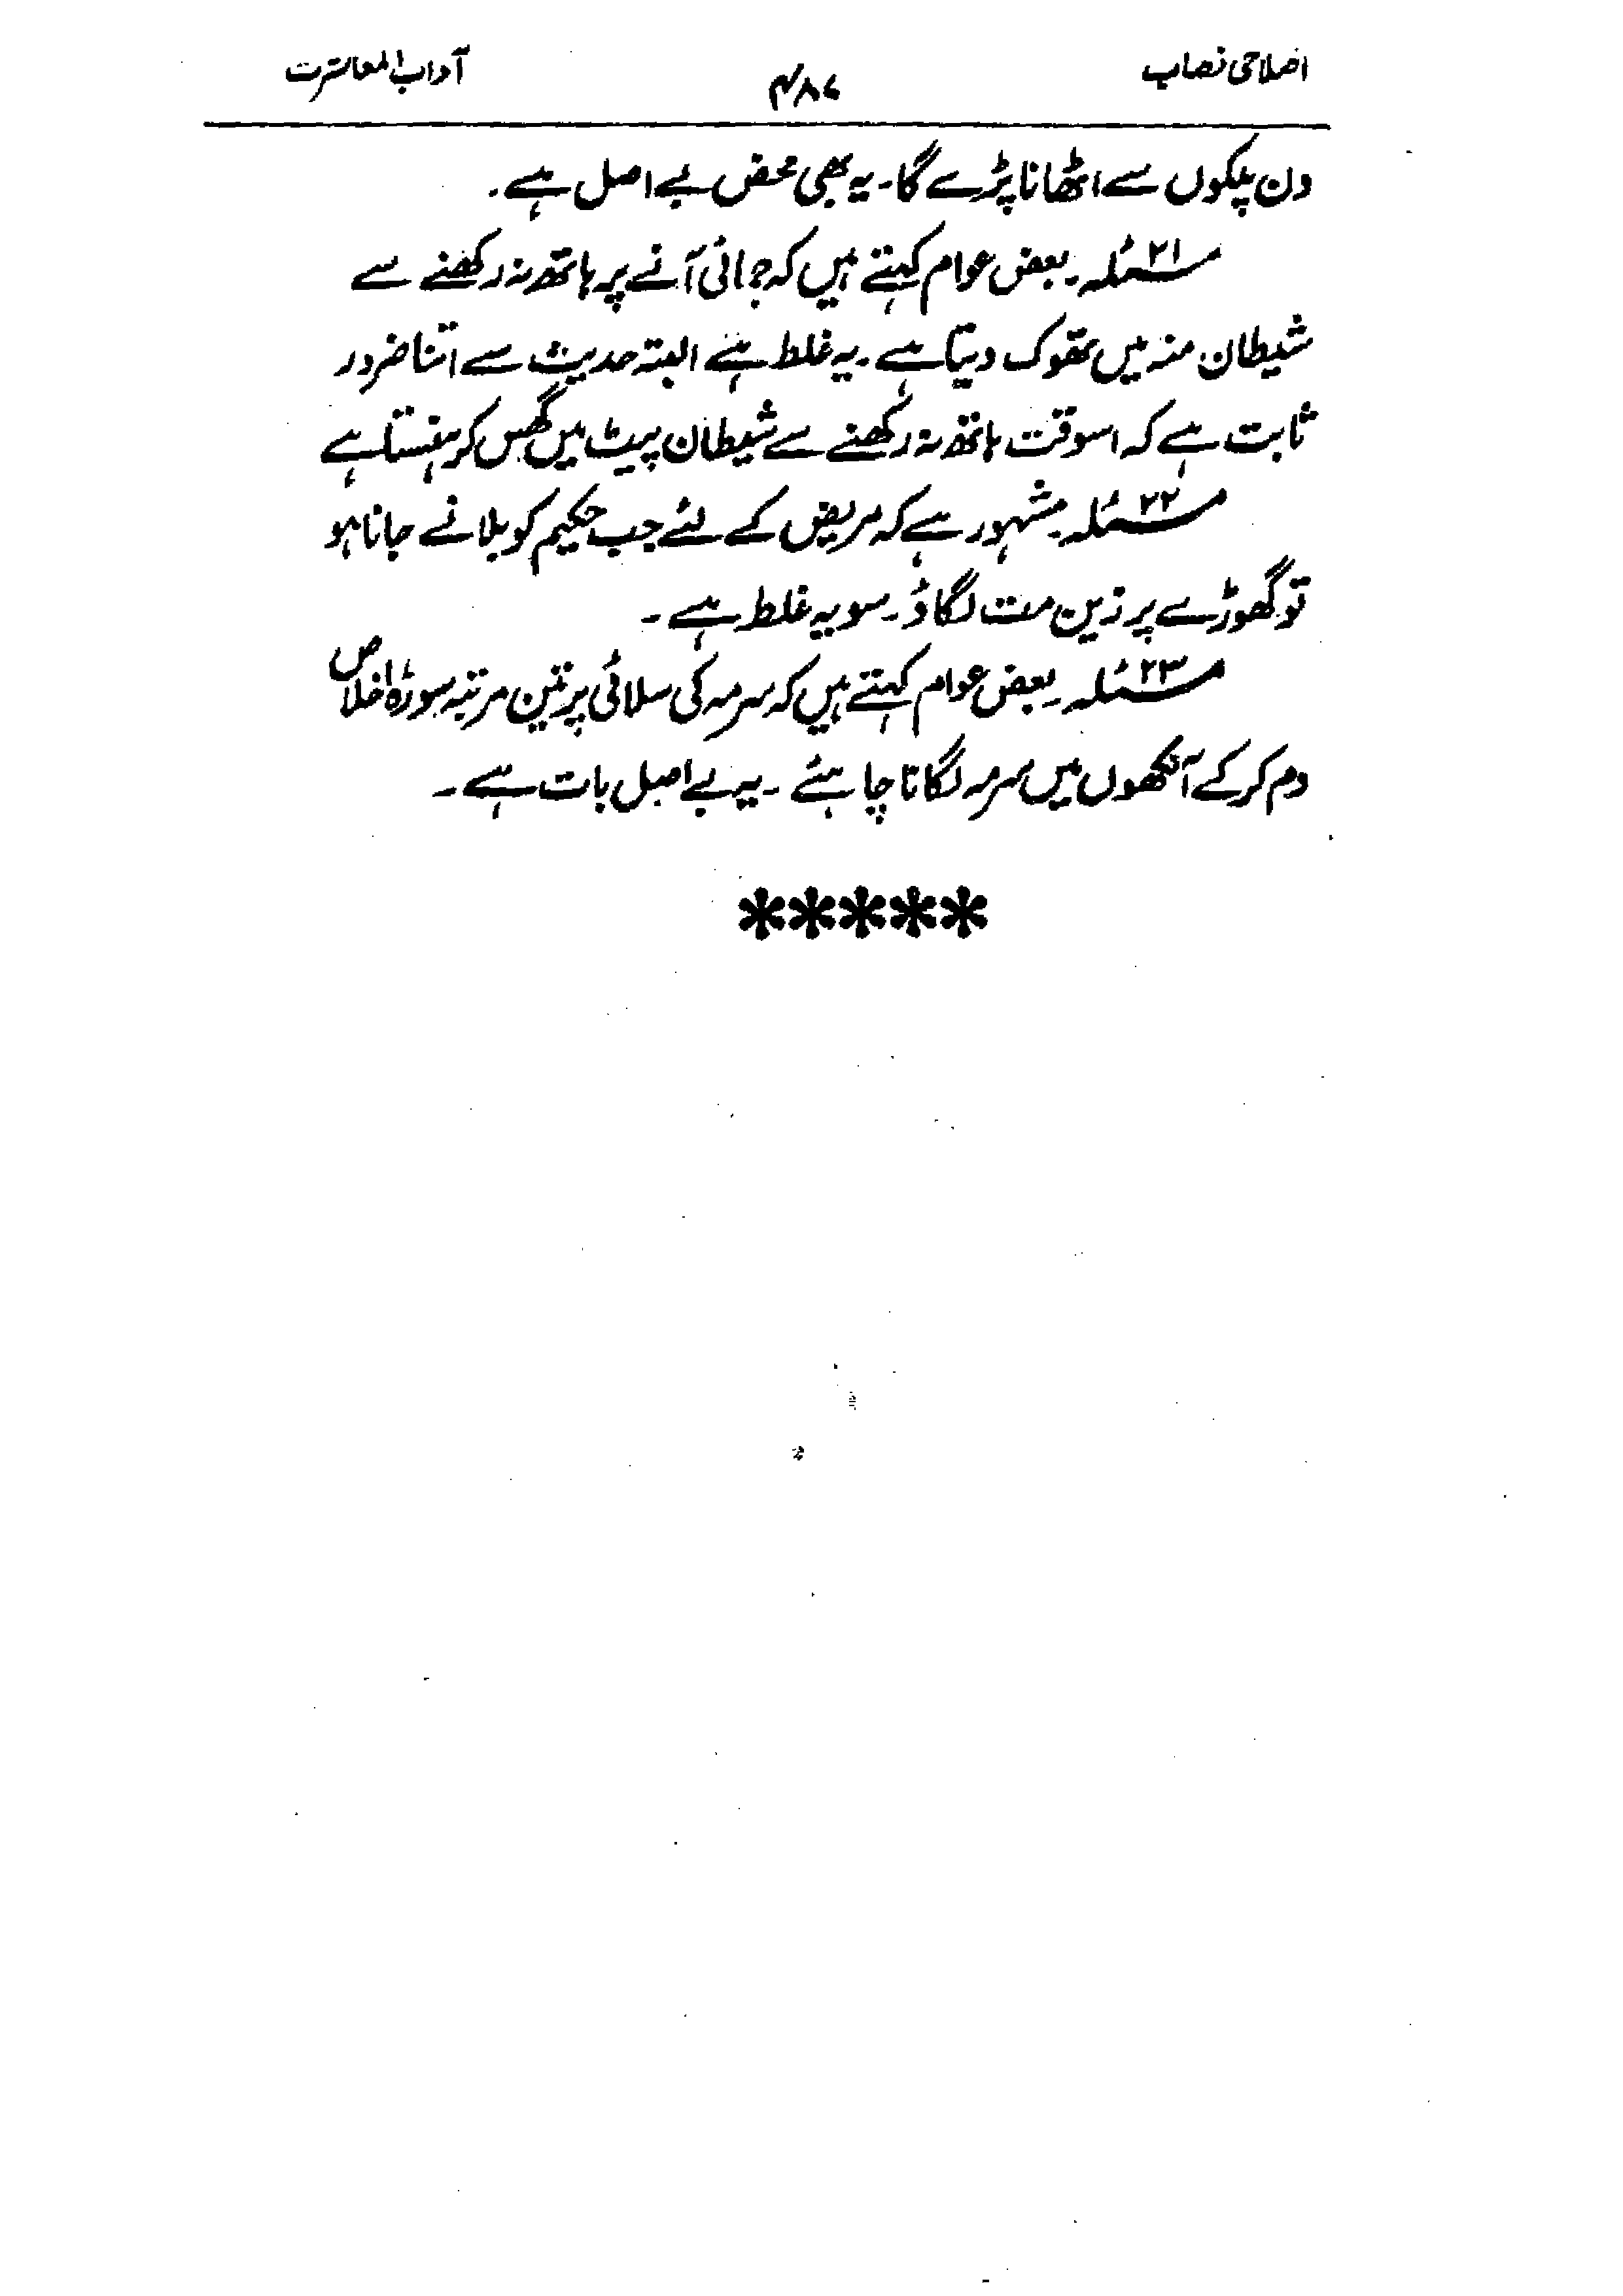 اصلاحی نصاب ۴۸۷ آداب المعاشرت
دن پلکوں سے اٹھانا پڑے گا۔ یہ بھی محض بے اصل ہے۔
مسئلہ ۲۱۔ بعض عوام کہتے ہیں کہ جمائی آنے پر ہاتھ نہ رکھنے سے
شیطان منہ میں تھوک دیتا ہے۔ یہ غلط ہے البتہ حدیث سے اتنا ضرور
ثابت ہے کہ اسوقت ہاتھ نہ رکھنے سے شیطان پیٹ میں گھس کر ہنستا ہے
مسئلہ ۲۲۔ مشہور ہے کہ مریض کے لئے جب حکیم کو بلانے جانا ہو
تو گھوڑے پر زین مت لگاؤ۔ سو یہ غلط ہے۔
مسئلہ ۲۳۔ بعض عوام کہتے ہیں کہ سرمہ کی سلائی پر تین مرتبہ سورۂ اخلاص
دم کر کے آنکھوں میں سرمہ لگانا چاہئے ۔ یہ بے اصل بات ہے۔
*****